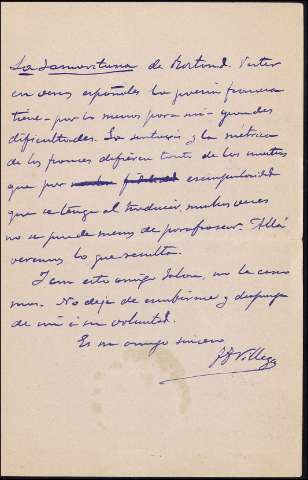 La Samaritana de Rostand. Verter
en versos españoles la poesía francesa
tiene - por lo menos para mí - grandes
dificultades. La sintaxis y la métrica
de los franceses difieren tanto de las nuestras
que por escrupulosidad
que se tenga al traducir, muchas veces
no se puede menos de parafrasear. Allá
veremos lo que resulta.
Y con esto amigo no le canso
mas. No deje de escribirme y disponga
de mí a su voluntad.
Es su amigo sincero
Villegas